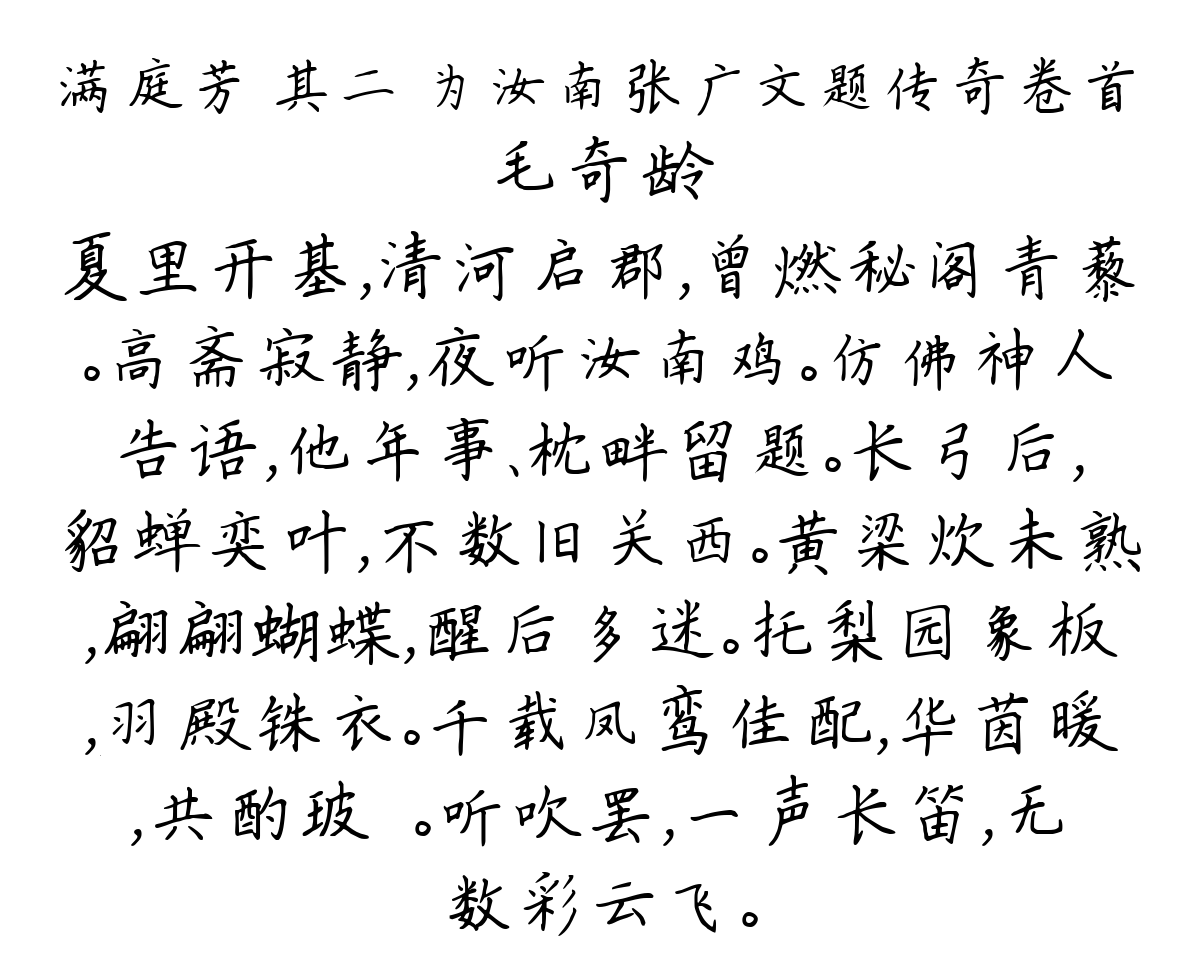 满庭芳 其二 为汝南张广文题传奇卷首
毛奇龄
夏里开基,清河启郡,曾燃秘阁青藜
。高斋寂静,夜听汝南鸡。仿佛神人
告语,他年事、枕畔留题。长弓后,
貂蝉奕叶,不数旧关西。黄梁炊未熟
,翩翩蝴蝶,醒后多迷。托梨园象板
,羽殿铢衣。千载凤鸾佳配,华茵暖
,共酌玻 。听吹罢,一声长笛,无
数彩云飞。